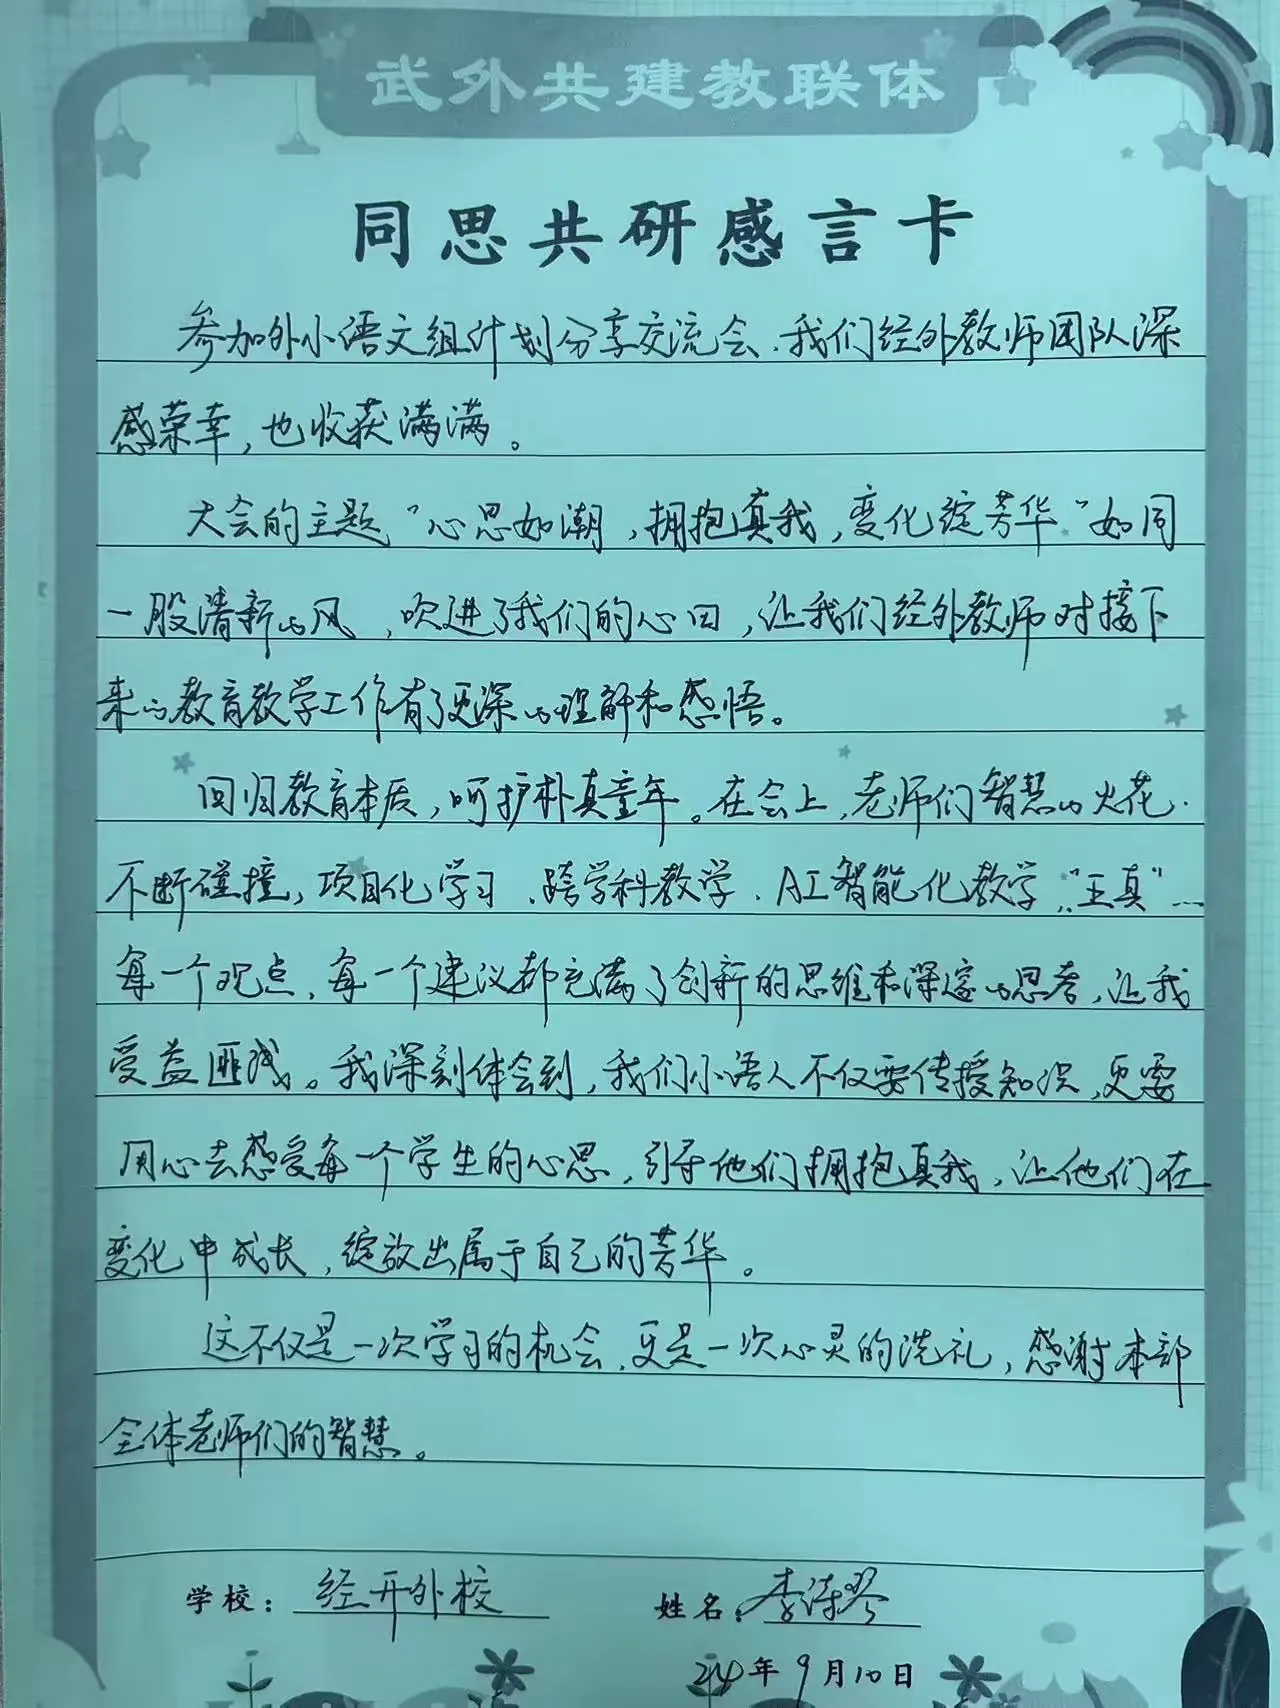 武外共建教联体
同思共研感言卡
参加外小语文组计划分享交流会,我们经外教师团队深
感荣幸,也收获满满。
大会的主题"心思如潮,拥抱真我,变化绽芳华"如同
一股清新的风,吹进了我们的心田,让我们经外教师对接下
来的教育教学工作有了更深的理解和感悟。
回归教育本质,呵护朴真童年。在会上,老师们智慧的火花
不断碰撞,项目化学习、跨学科教学、AI智能化教学、"王真"……
每一个观点,每一个建议都充满了创新的思维和深邃的思考,让我
受益匪浅。我深刻体会到,我们小语人不仅要传授知识,更要
用心去感受每一个学生的心思,引导他们拥抱真我,让他们在
变化中成长,绽放出属于自己的芳华。
这不仅是一次学习的机会,更是一次心灵的洗礼,感谢本部
全体老师们的智慧。
学校: 经开外校 姓名: 李诗琴
24年9月10日